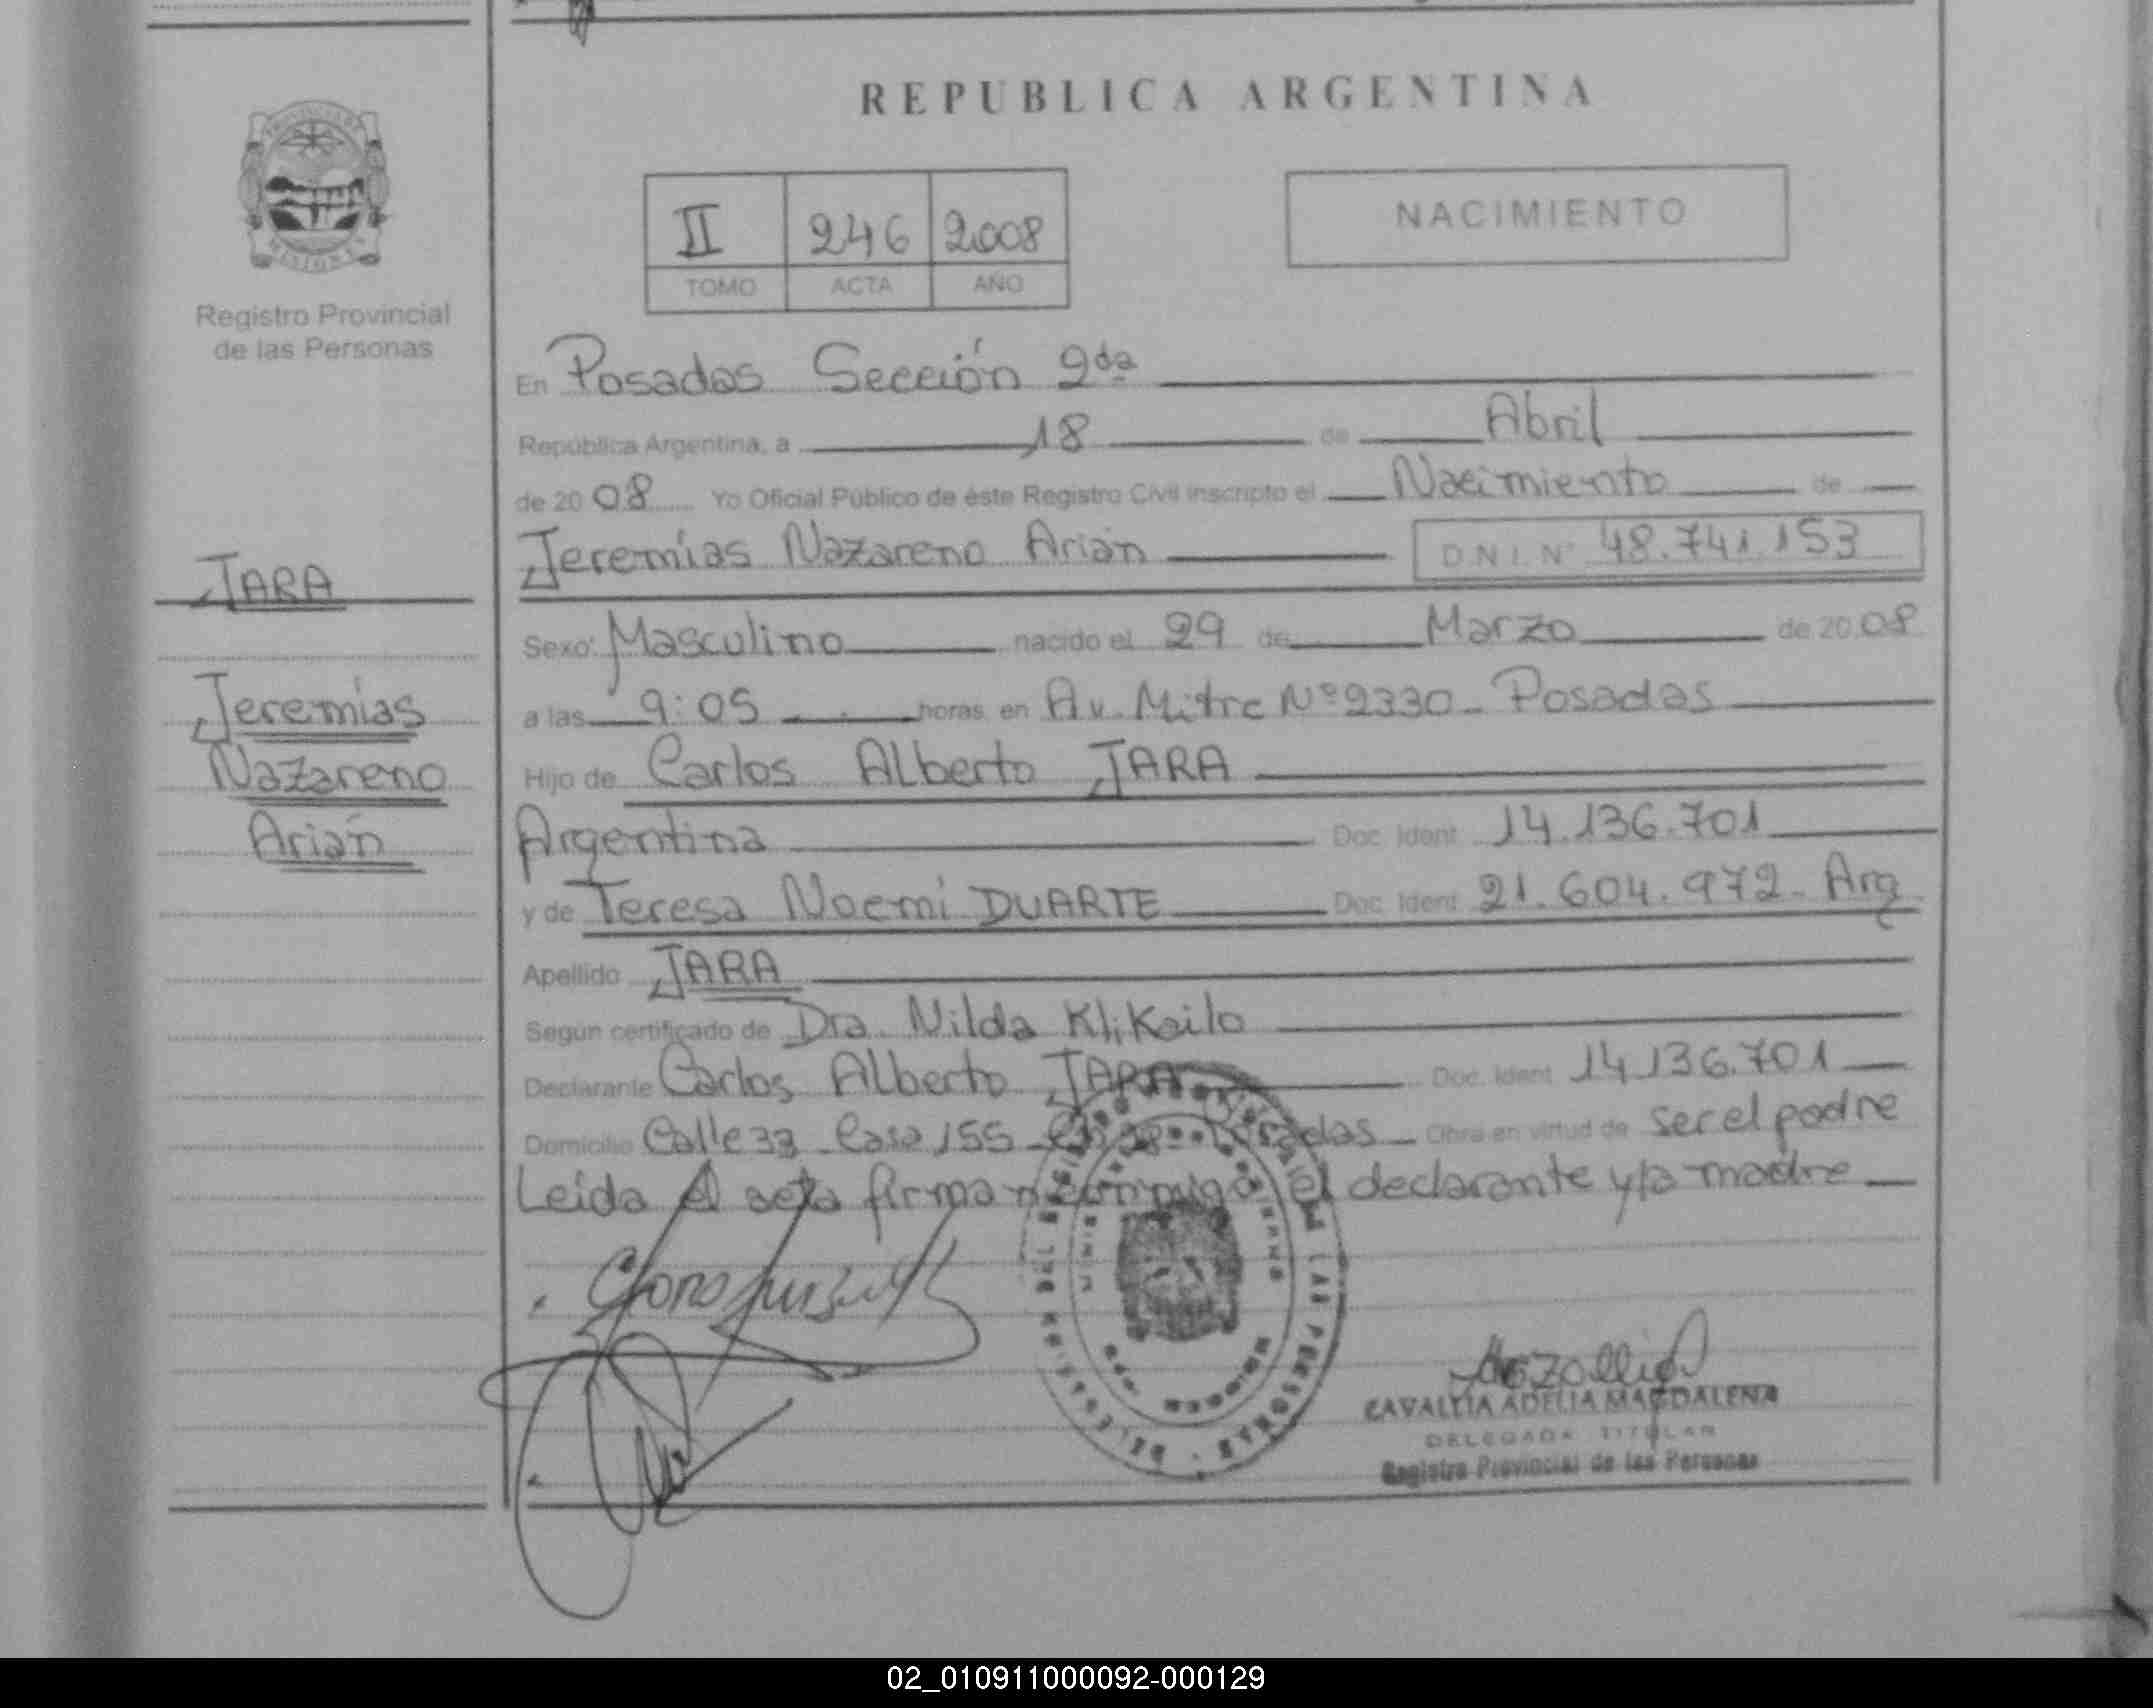 REPUBLICA ARGENTINA
II 246 2008
TOMO ACTA AÑO
NACIMIENTO
Registro Provincial
de las Personas
JARA
Jeremías
Nazareno
Arián
En Posadas Sección 2da
República Argentina, a 18 de Abril
de 2008 Yo Oficial Público de éste Registro Civil inscripto el Nacimiento de
Jeremías Nazareno Arián D.N.I. N° 48.741.153
Sexo: Masculino nacido el 29 de Marzo de 2008
a las 9:05 horas en Av. Mitre Nº 2330 - Posadas
Hijo de Carlos Alberto JARA
Argentina Doc. Ident. 14.136.701
y de Teresa Noemi DUARTE Doc. Ident. 21.604.972 - Arg
Apellido JARA
Según certificado de Dra. Nilda Klikailo
Declarante Carlos Alberto JARA Doc. Ident. 14.136.701
Domicilio Calle 33 Casa 155 Posadas Obra en virtud de ser el padre
Leída el acta firman conmigo el declarante y la madre
CAVALLIA ADELIA MAGDALENA
DELEGADA TITULAR
Registro Provincial de las Personas
02_010911000092-000129